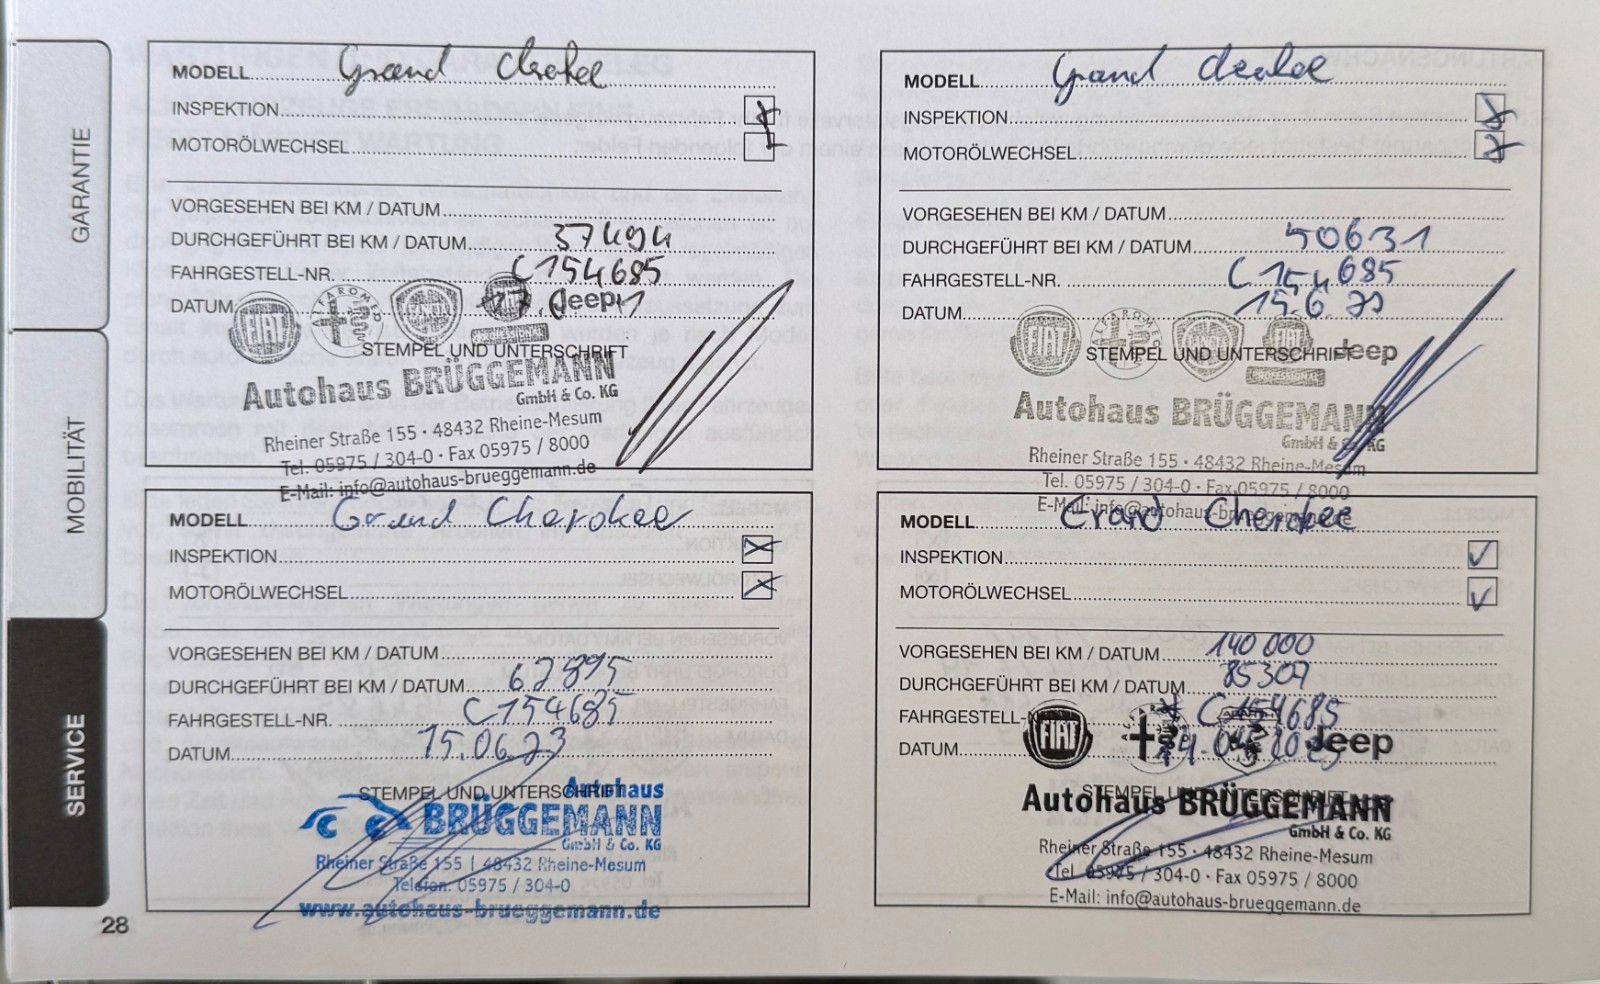 GARANTIE
MOBILITÄT
SERVICE
MODELL Grand Cherokee
INSPEKTION
MOTORÖLWECHSEL
VORGESEHEN BEI KM / DATUM
DURCHGEFÜHRT BEI KM / DATUM 37494
FAHRGESTELL-NR. C154685
DATUM
FIAT ALFA ROMEO LANCIA Jeep
STEMPEL UND UNTERSCHRIFT
Autohaus BRÜGGEMANN
GmbH & Co. KG
Rheiner Straße 155 · 48432 Rheine-Mesum
Tel. 05975 / 304-0 · Fax 05975 / 8000
E-Mail: info@autohaus-brueggemann.de
MODELL Grand Cherokee
INSPEKTION
MOTORÖLWECHSEL
VORGESEHEN BEI KM / DATUM
DURCHGEFÜHRT BEI KM / DATUM 50631
FAHRGESTELL-NR. C154685
DATUM 15.6.
FIAT ALFA ROMEO LANCIA PROFESSIONAL Jeep
STEMPEL UND UNTERSCHRIFT
Autohaus BRÜGGEMANN
GmbH & Co. KG
Rheiner Straße 155 · 48432 Rheine-Mesum
Tel. 05975 / 304-0 · Fax 05975 / 8000
E-Mail: info@autohaus-brueggemann.de
MODELL Grand Cherokee
INSPEKTION
MOTORÖLWECHSEL
VORGESEHEN BEI KM / DATUM
DURCHGEFÜHRT BEI KM / DATUM 67895
FAHRGESTELL-NR. C154685
DATUM 15.06.23
STEMPEL UND UNTERSCHRIFT
Autohaus
BRÜGGEMANN
GmbH & Co. KG
Rheiner Straße 155 | 48432 Rheine-Mesum
Telefon: 05975 / 304-0
www.autohaus-brueggemann.de
MODELL Grand Cherokee
INSPEKTION
MOTORÖLWECHSEL
VORGESEHEN BEI KM / DATUM 140 000
DURCHGEFÜHRT BEI KM / DATUM 85307
FAHRGESTELL-NR. C154685
DATUM
FIAT Jeep
STEMPEL UND UNTERSCHRIFT
Autohaus BRÜGGEMANN
GmbH & Co. KG
Rheiner Straße 155 · 48432 Rheine-Mesum
Tel. 05975 / 304-0 · Fax 05975 / 8000
E-Mail: info@autohaus-brueggemann.de
28